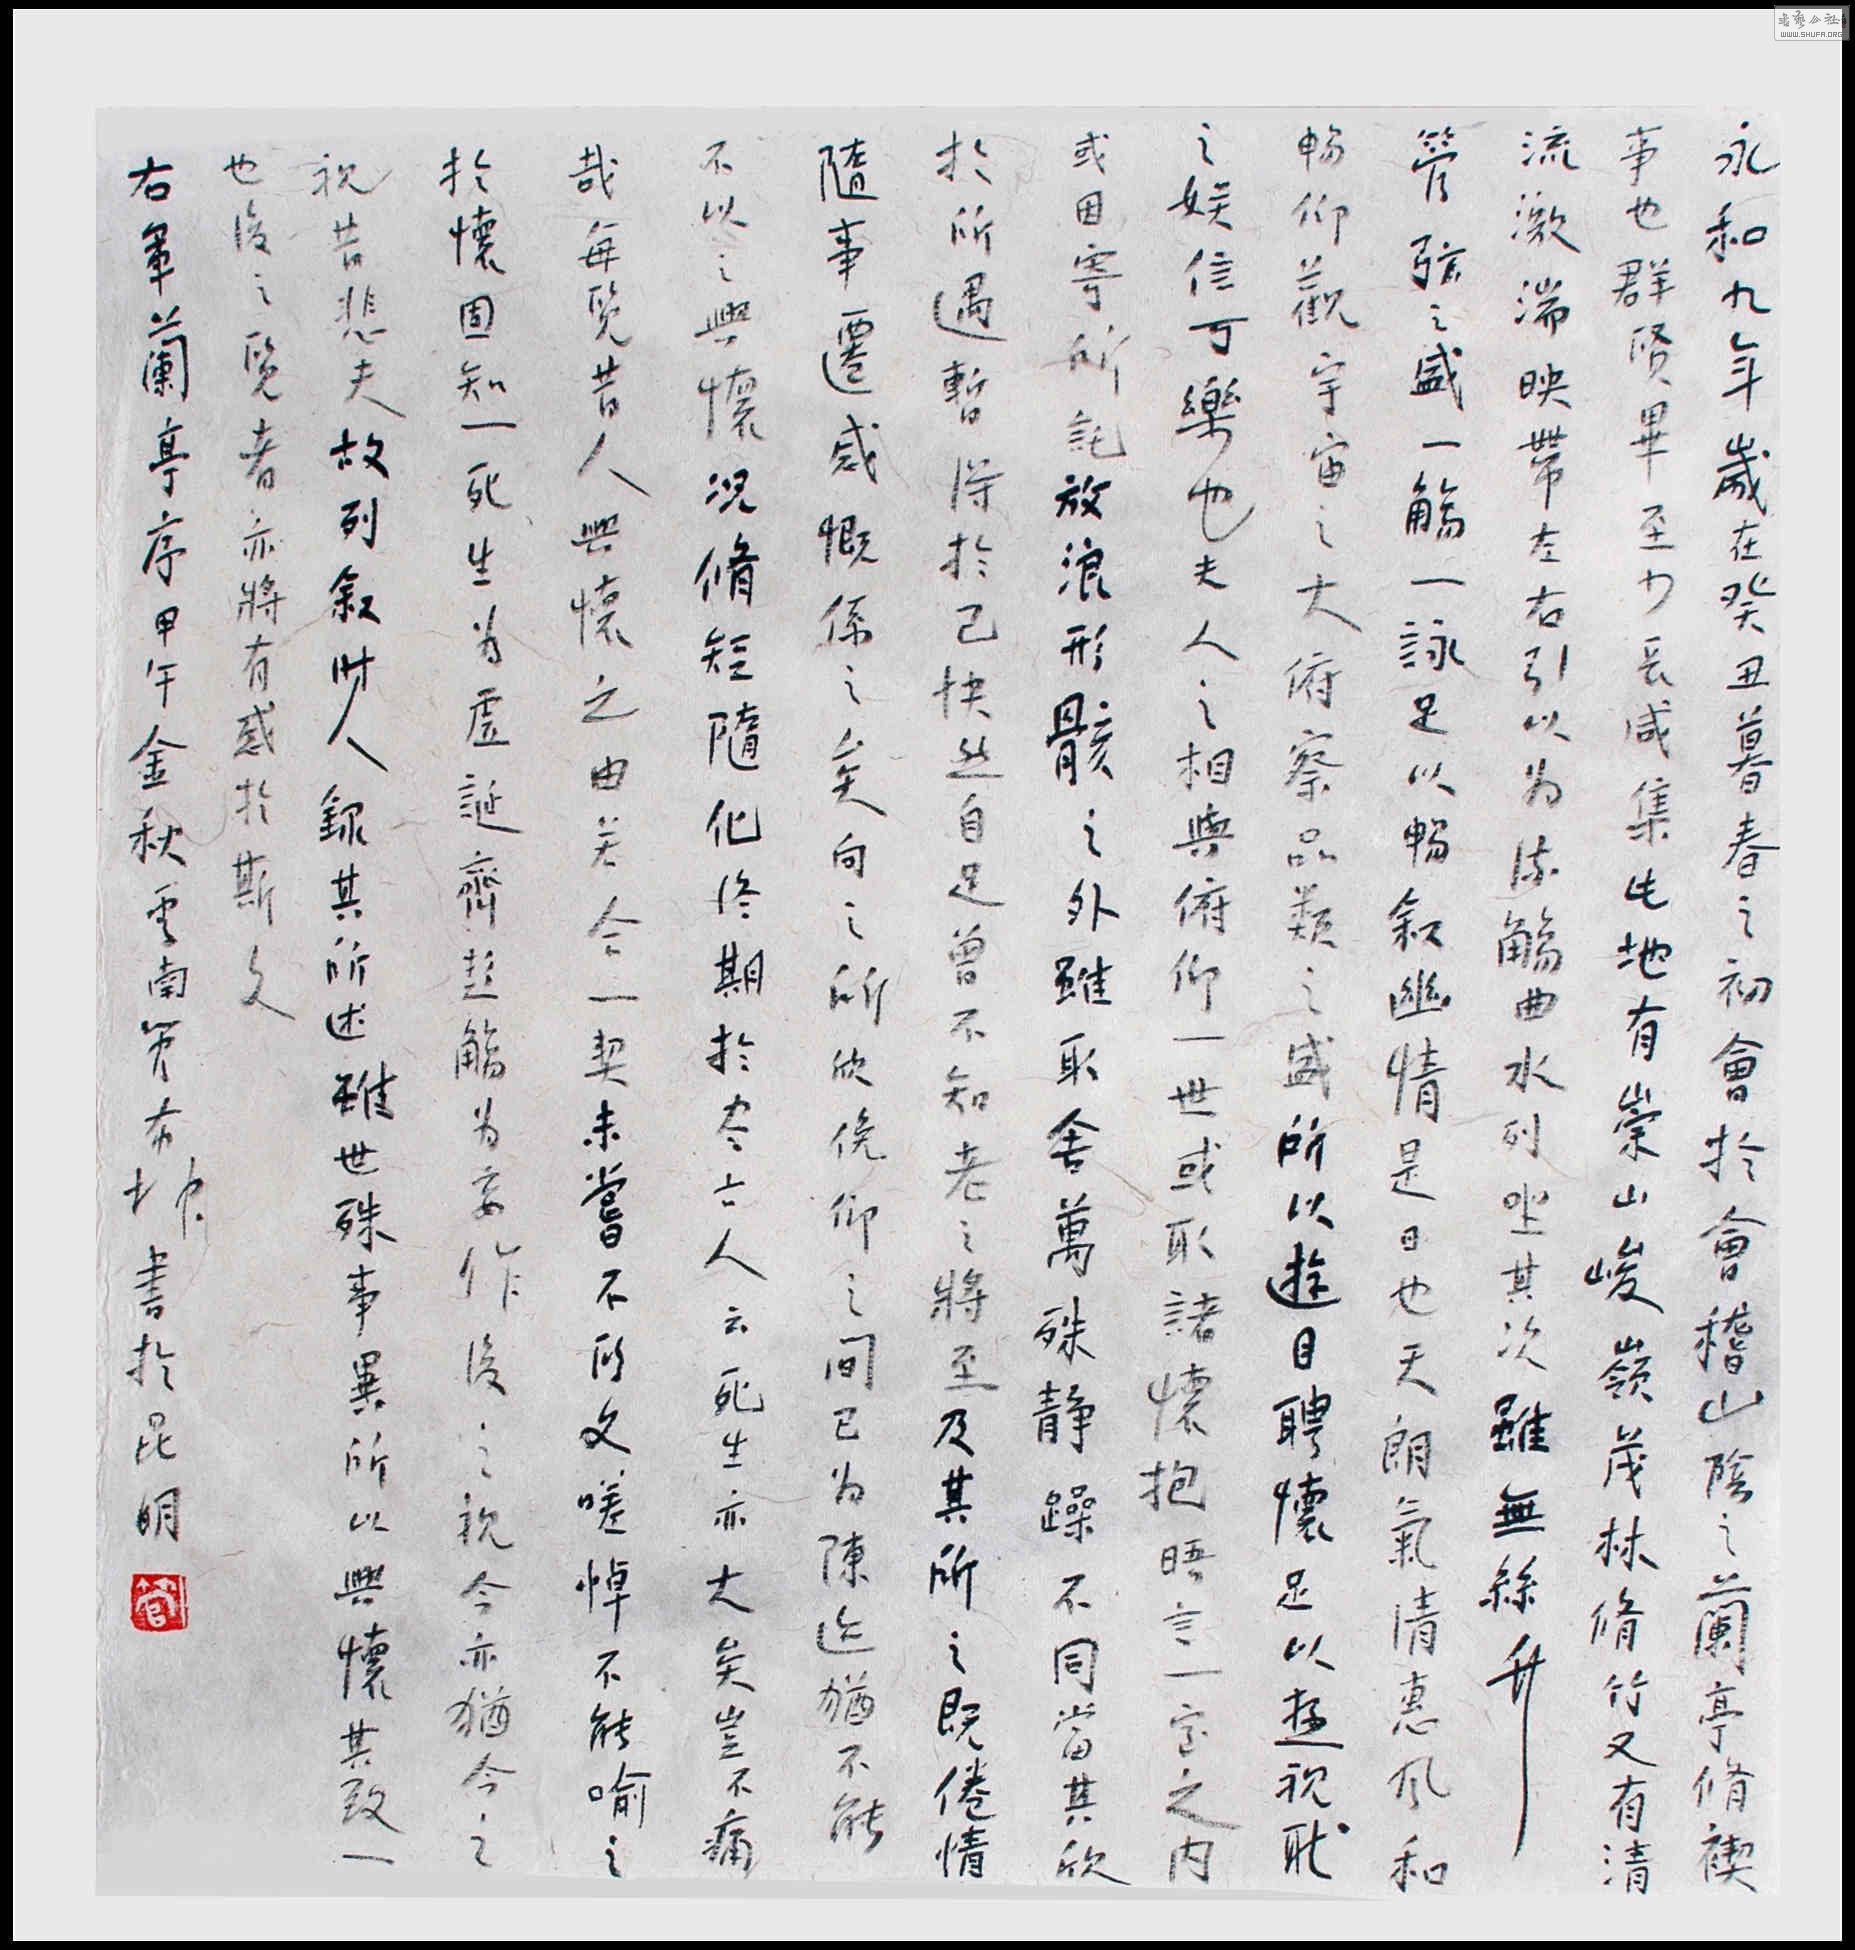 永和九年歲在癸丑暮春之初會於會稽山陰之蘭亭脩禊
事也群賢畢至少長咸集此地有崇山峻嶺茂林脩竹又有清
流激湍映帶左右引以為流觴曲水列坐其次雖無絲竹
管弦之盛一觴一詠足以暢叙幽情是日也天朗氣清惠風和
暢仰觀宇宙之大俯察品類之盛所以遊目騁懷足以極視聽
之娛信可樂也夫人之相與俯仰一世或取諸懷抱晤言一室之內
或因寄所託放浪形骸之外雖取舍萬殊静躁不同當其欣
於所遇暫得於己快然自足曾不知老之將至及其所之既倦情
隨事遷感慨係之矣向之所欣俛仰之間已為陳迹猶不能
不以之興懷況脩短隨化終期於盡古人云死生亦大矣豈不痛
哉每覽昔人興懷之由若合一契未嘗不臨文嗟悼不能喻之
於懷固知一死生為虛誕齊彭殤為妄作後之視今亦猶今之
視昔悲夫故列叙時人錄其所述雖世殊事異所以興懷其致一
也後之覽者亦將有感於斯文
右軍蘭亭序甲午金秋雲南管布坤書於昆明
管
书艺公社
WWW.SHUFA.ORG